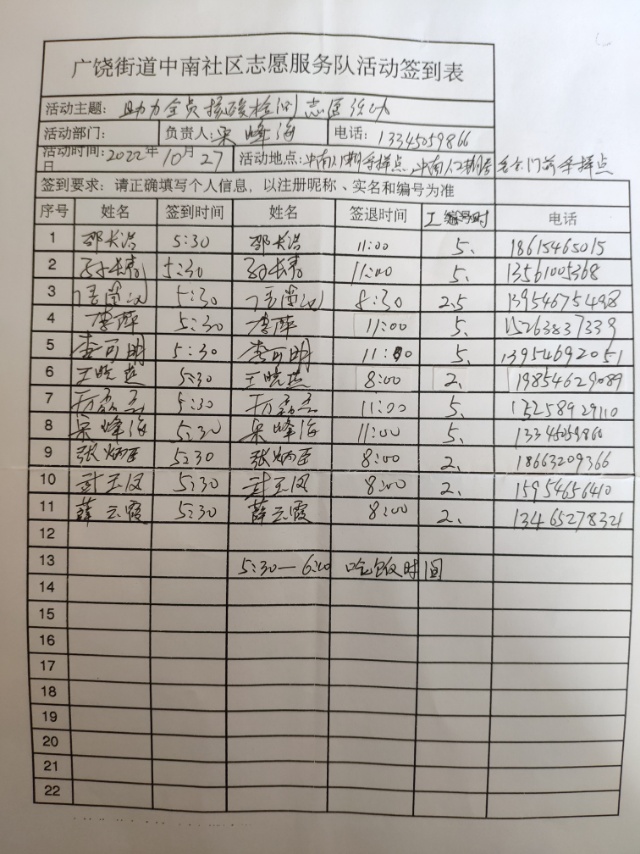 广饶街道中南社区志愿服务队活动签到表
活动主题：助力全员核酸检测志愿活动
活动部门： 负责人：宋峰海 电话：13345059866
活动时间：2022年10月27日 活动地点：中南1期采样点 中南 2期 大门前采样点
签到要求：请正确填写个人信息，以注册昵称、实名和编号为准
序号 姓名 签到时间 姓名 签退时间 工 时 电话
1 邵长浩 5:30 邵长浩 11:00 5. 18615465015
2 孙长春 5:30 孙长春 11:00 5. 13561005368
3 5:30 8:30 2.5 13954675498
4 李萍 5:30 李萍 11:00 5. 15263837339
5 李可明 5:30 李可明 11:00 5. 13954692051
6 王晓燕 5:30 王晓燕 8:00 2. 19854629089
7 5:30 11:00 5. 13258929110
8 宋峰海 5:30 宋峰海 11:00 5. 13345059866
9 张炳臣 5:30 张炳臣 8:00 2. 18663209366
10 武玉凤 5:30 武玉凤 8:00 2. 15954656410
11 薛云霞 5:30 薛云霞 8:00 2. 13465278321
12
13 5:30—6:00 吃饭时间
14
15
16
17
18
19
20
21
22